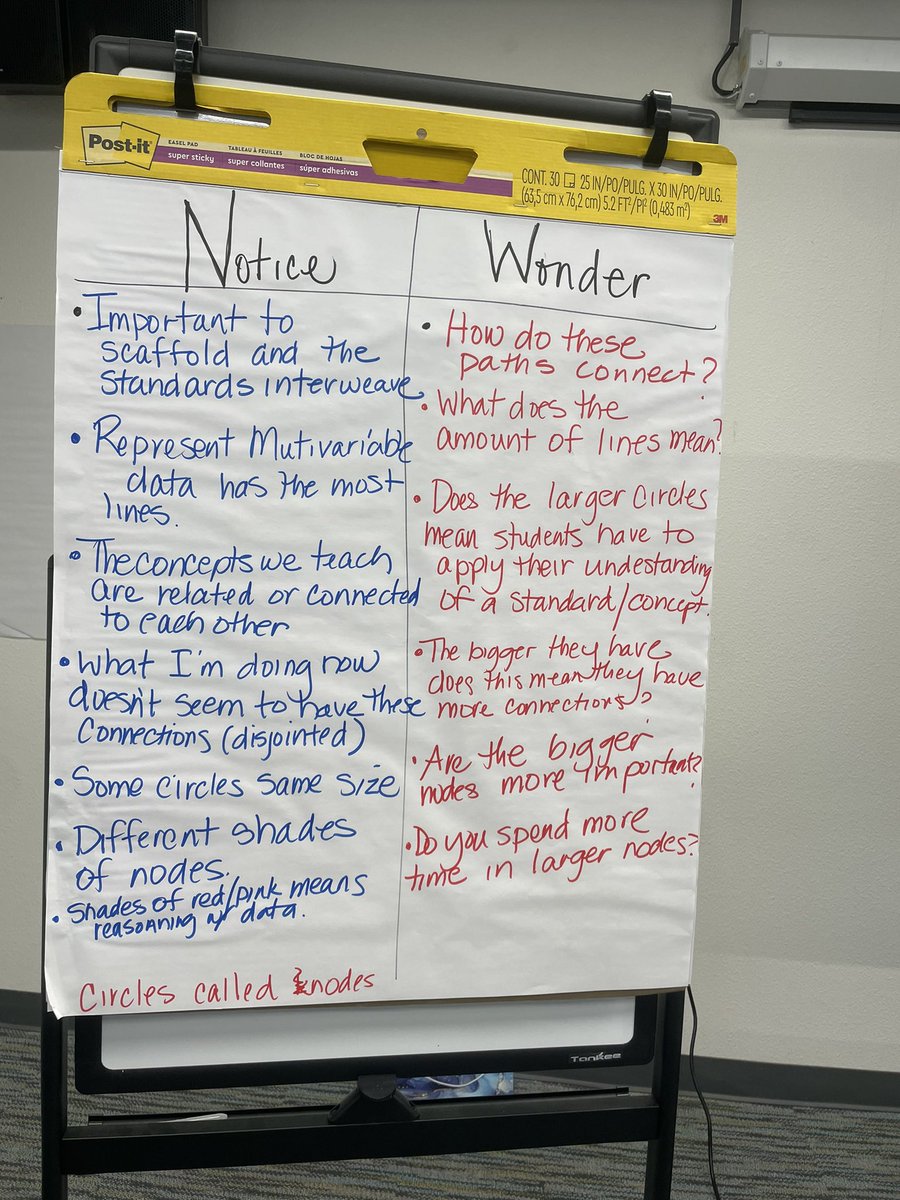 Post-it
EASEL PAD
super sticky
TABLEAU À FEUILLES
super collantes
BLOC DE HOJAS
súper adhesivas
CONT. 30 25 IN/PO/PULG. X 30 IN/PO/PULG.
(63,5 cm x 76,2 cm) 5.2 FT²/PI² (0,483 m²)
3M
Notice
• Important to
scaffold and the
standards interweave
• Represent Mutivariable
data has the most
lines.
• The concepts we teach
are related or connected
to each other
• What I'm doing now
doesn't seem to have these
connections (disjointed)
• Some circles same size
• Different shades
of nodes.
• Shades of red/pink means
reasonning w/ data.
Circles called nodes
Wonder
• How do these
paths connect?
• What does the
amount of lines mean?
• Does the larger circles
mean students have to
apply their undestanding
of a standard/concept.
• The bigger they have
does this mean they have
more connections?
• Are the bigger
nodes more important?
• Do you spend more
time in larger nodes?
Tankee